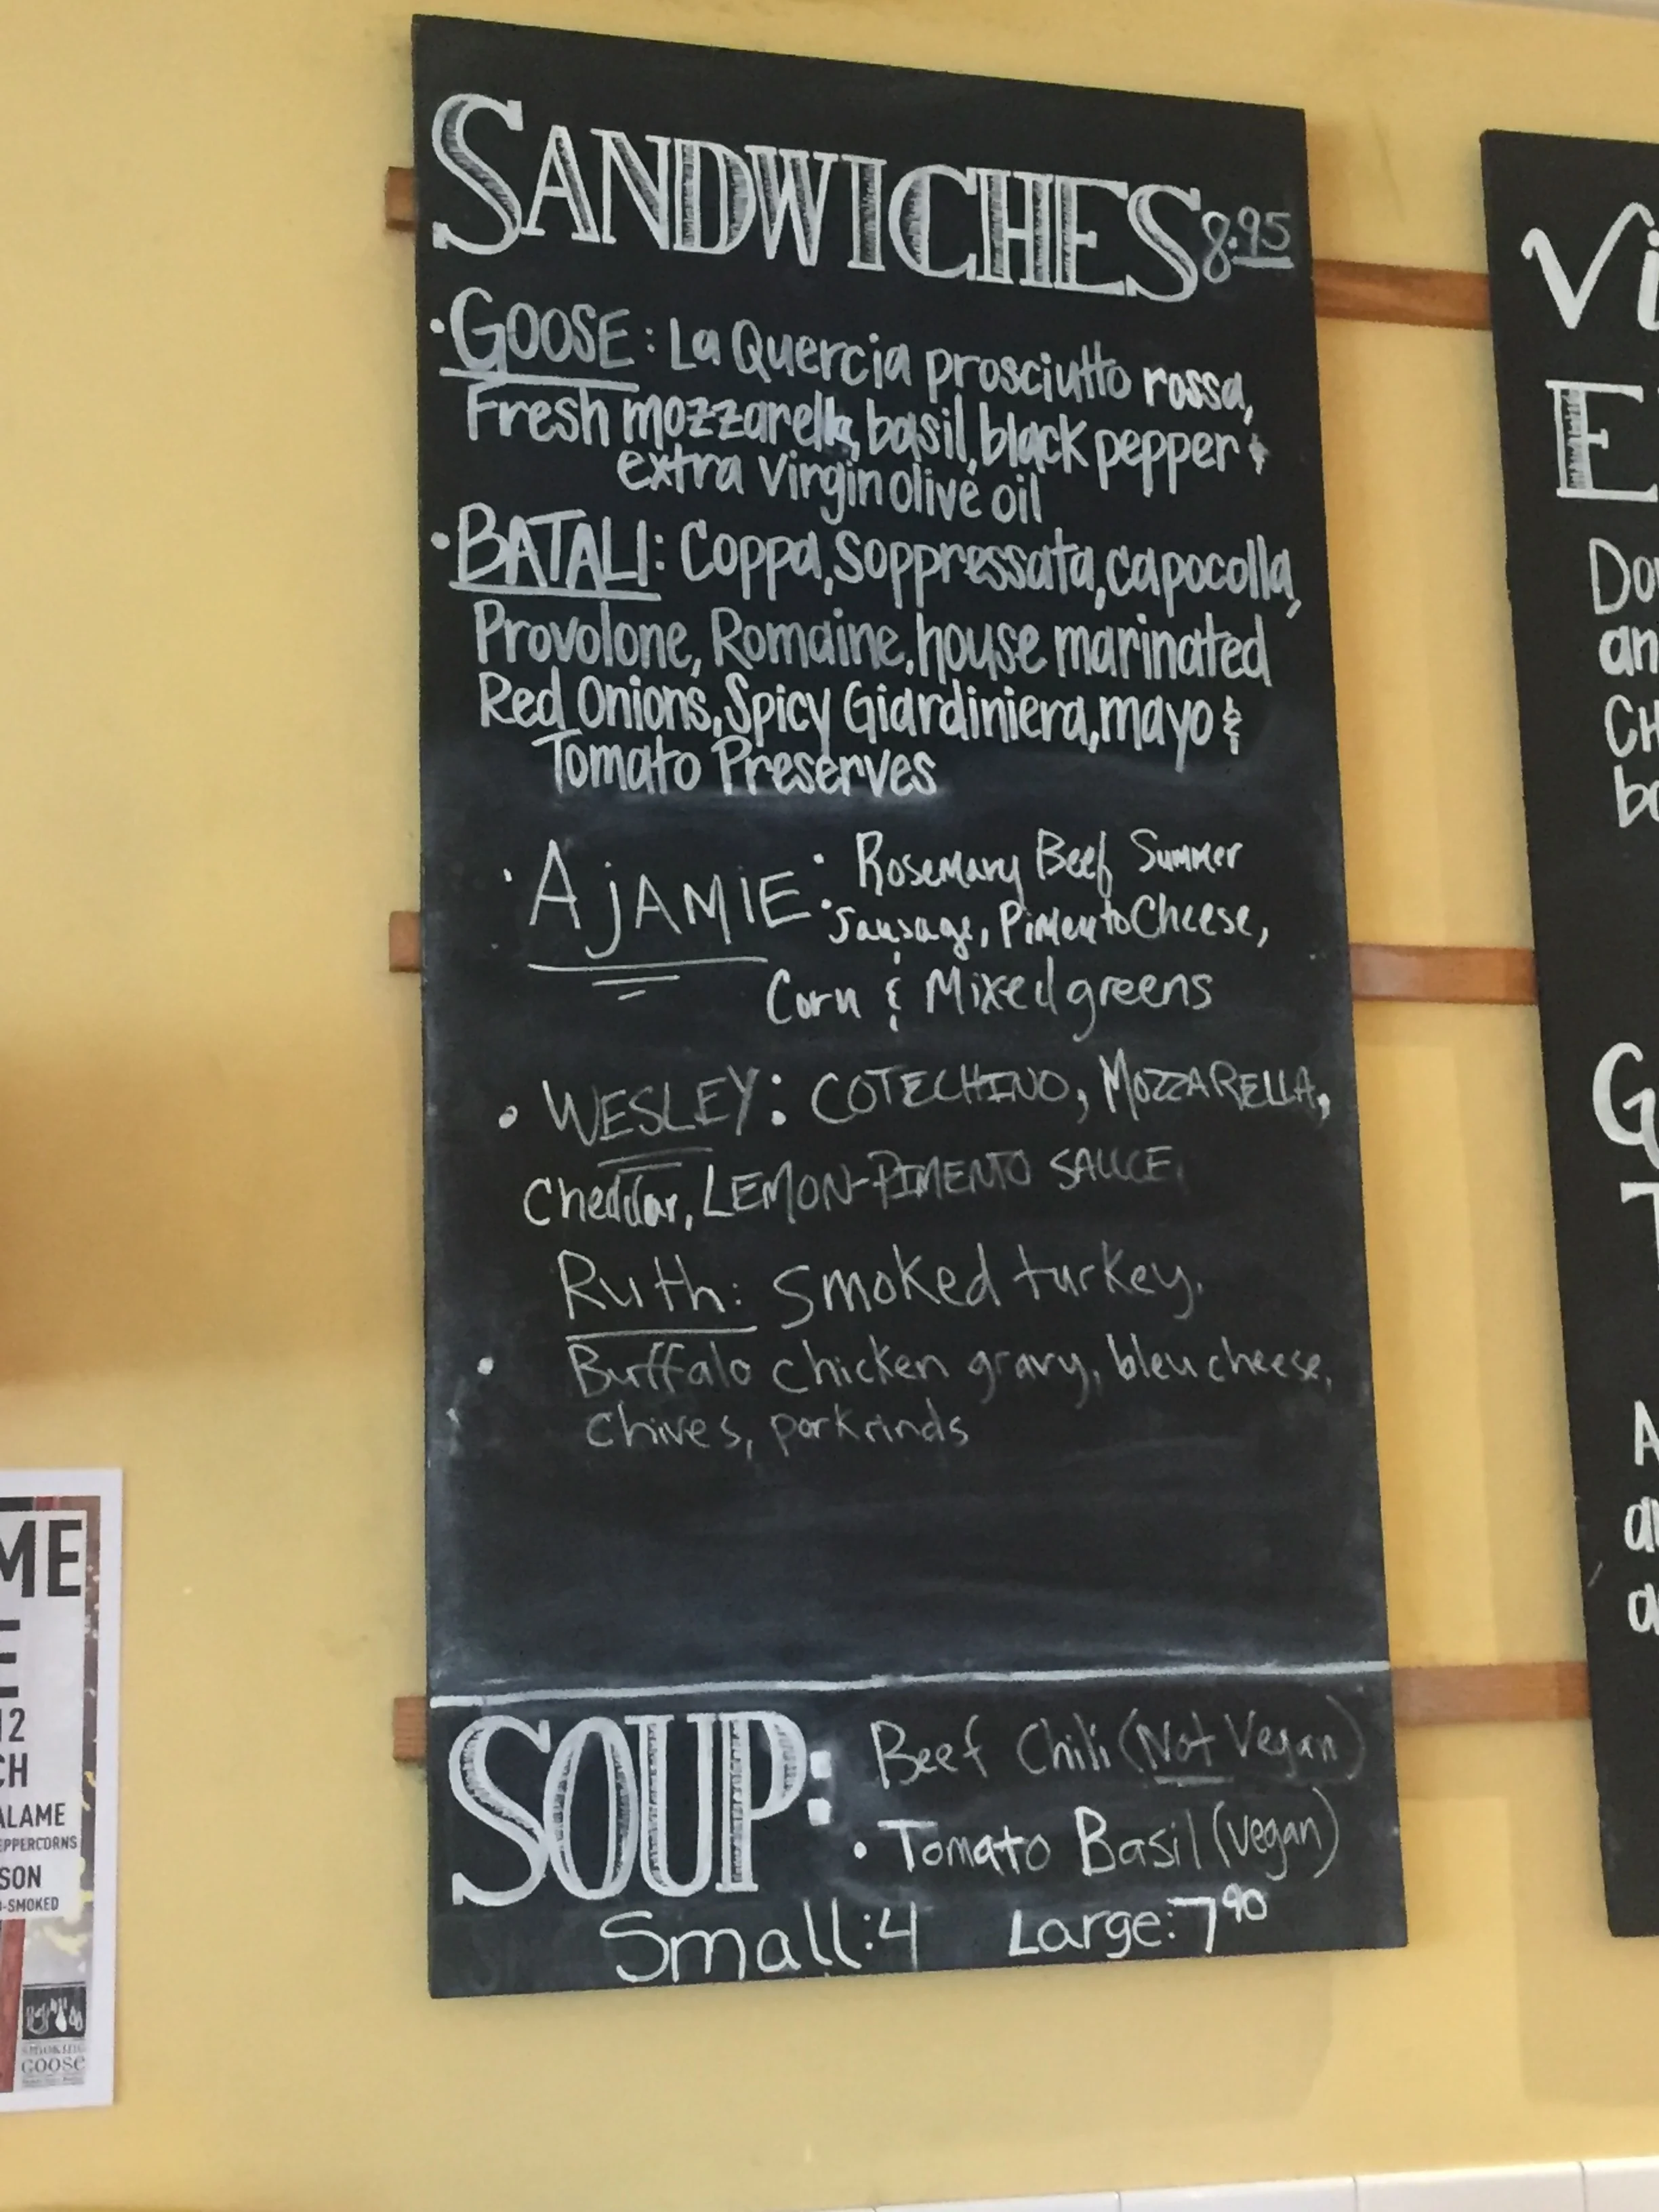 SANDWICHES 8.95
• GOOSE: La Quercia prosciutto rossa,
Fresh mozzarella, basil, black pepper &
extra virgin olive oil
• BATALI: Coppa, Soppressata, capocolla,
Provolone, Romaine, house marinated
Red Onions, Spicy Giardiniera, mayo &
Tomato Preserves
• AjAMiE: Rosemary Beef Summer
Sausage, Pimento Cheese,
Corn & Mixed greens
• WESLEY: COTECHINO, MOZZARELLA,
Cheddar, LEMON-PIMENTO SAUCE,
Ruth: smoked turkey,
• Buffalo chicken gravy, bleu cheese,
chives, porkrinds
SOUP: Beef Chili (Not Vegan)
• Tomato Basil (vegan)
Small: 4 Large: 7 90
Vi
E
Do
an
CH
bo
G
T
A
a
a
ME
E
12
CH
ALAME
EPPERCORNS
SON
-SMOKED
SMOKING
GOOSE